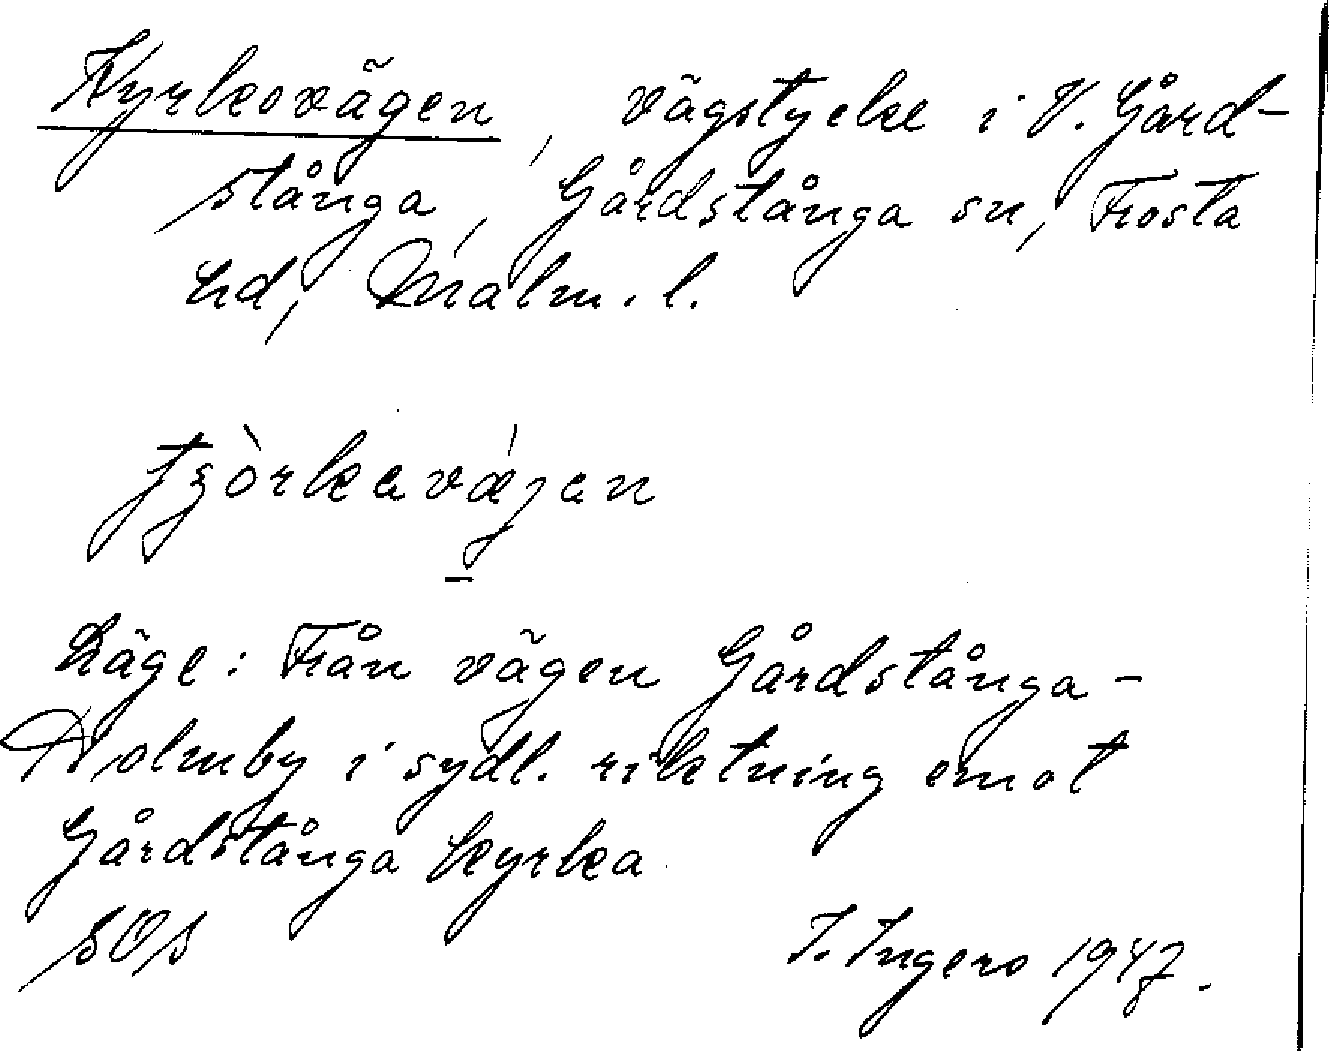 Kyrkovägen, vägstycke i V. Gård-
stånga, Gårdstånga sn, Frosta
hd, Malm. l.
tʒòrkavǽjan
Läge: Från vägen Gårdstånga-
Holmby i sydl. riktning emot
Gårdstånga kyrka
SOS
I. Ingers 1947.